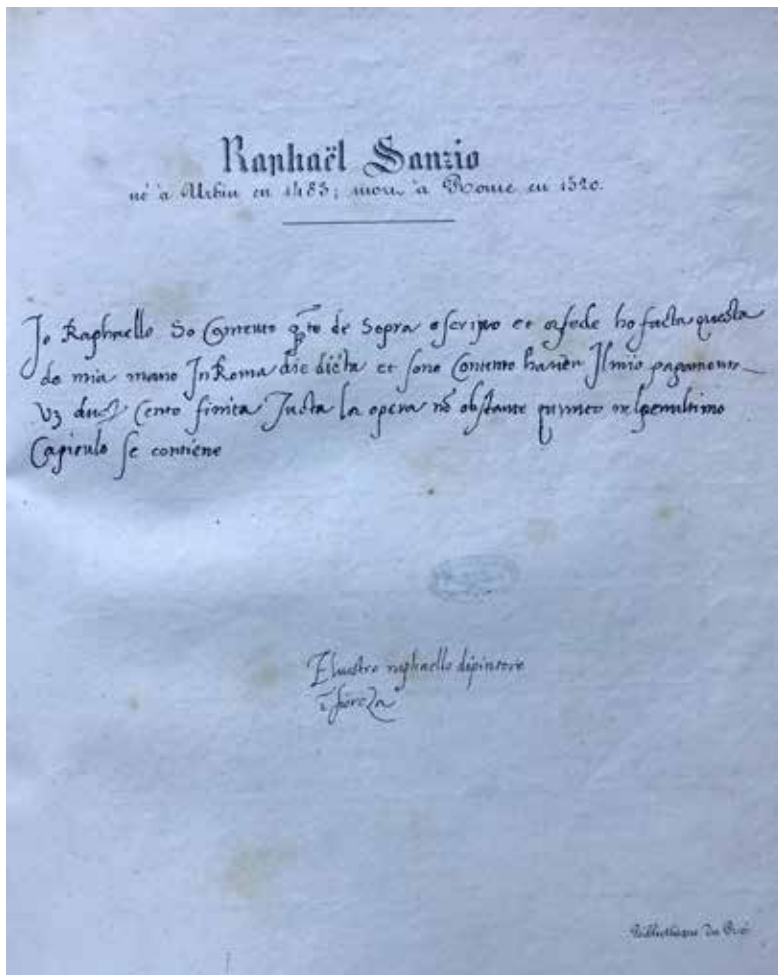 Raphaël Sanzio
né à Urbin en 1483; mort à Rome en 1520.
Io Raphaello So Contento qto de Sopra e scripto et a fede ho facta questa
de mia mano In Roma die dicta et sono Contento haver Il mio pagamento
Vz duc Cento finita Tucta la opera nō obstante nel penultimo
Capitulo se contiene
raphaello dipintore
Bibliothèque du